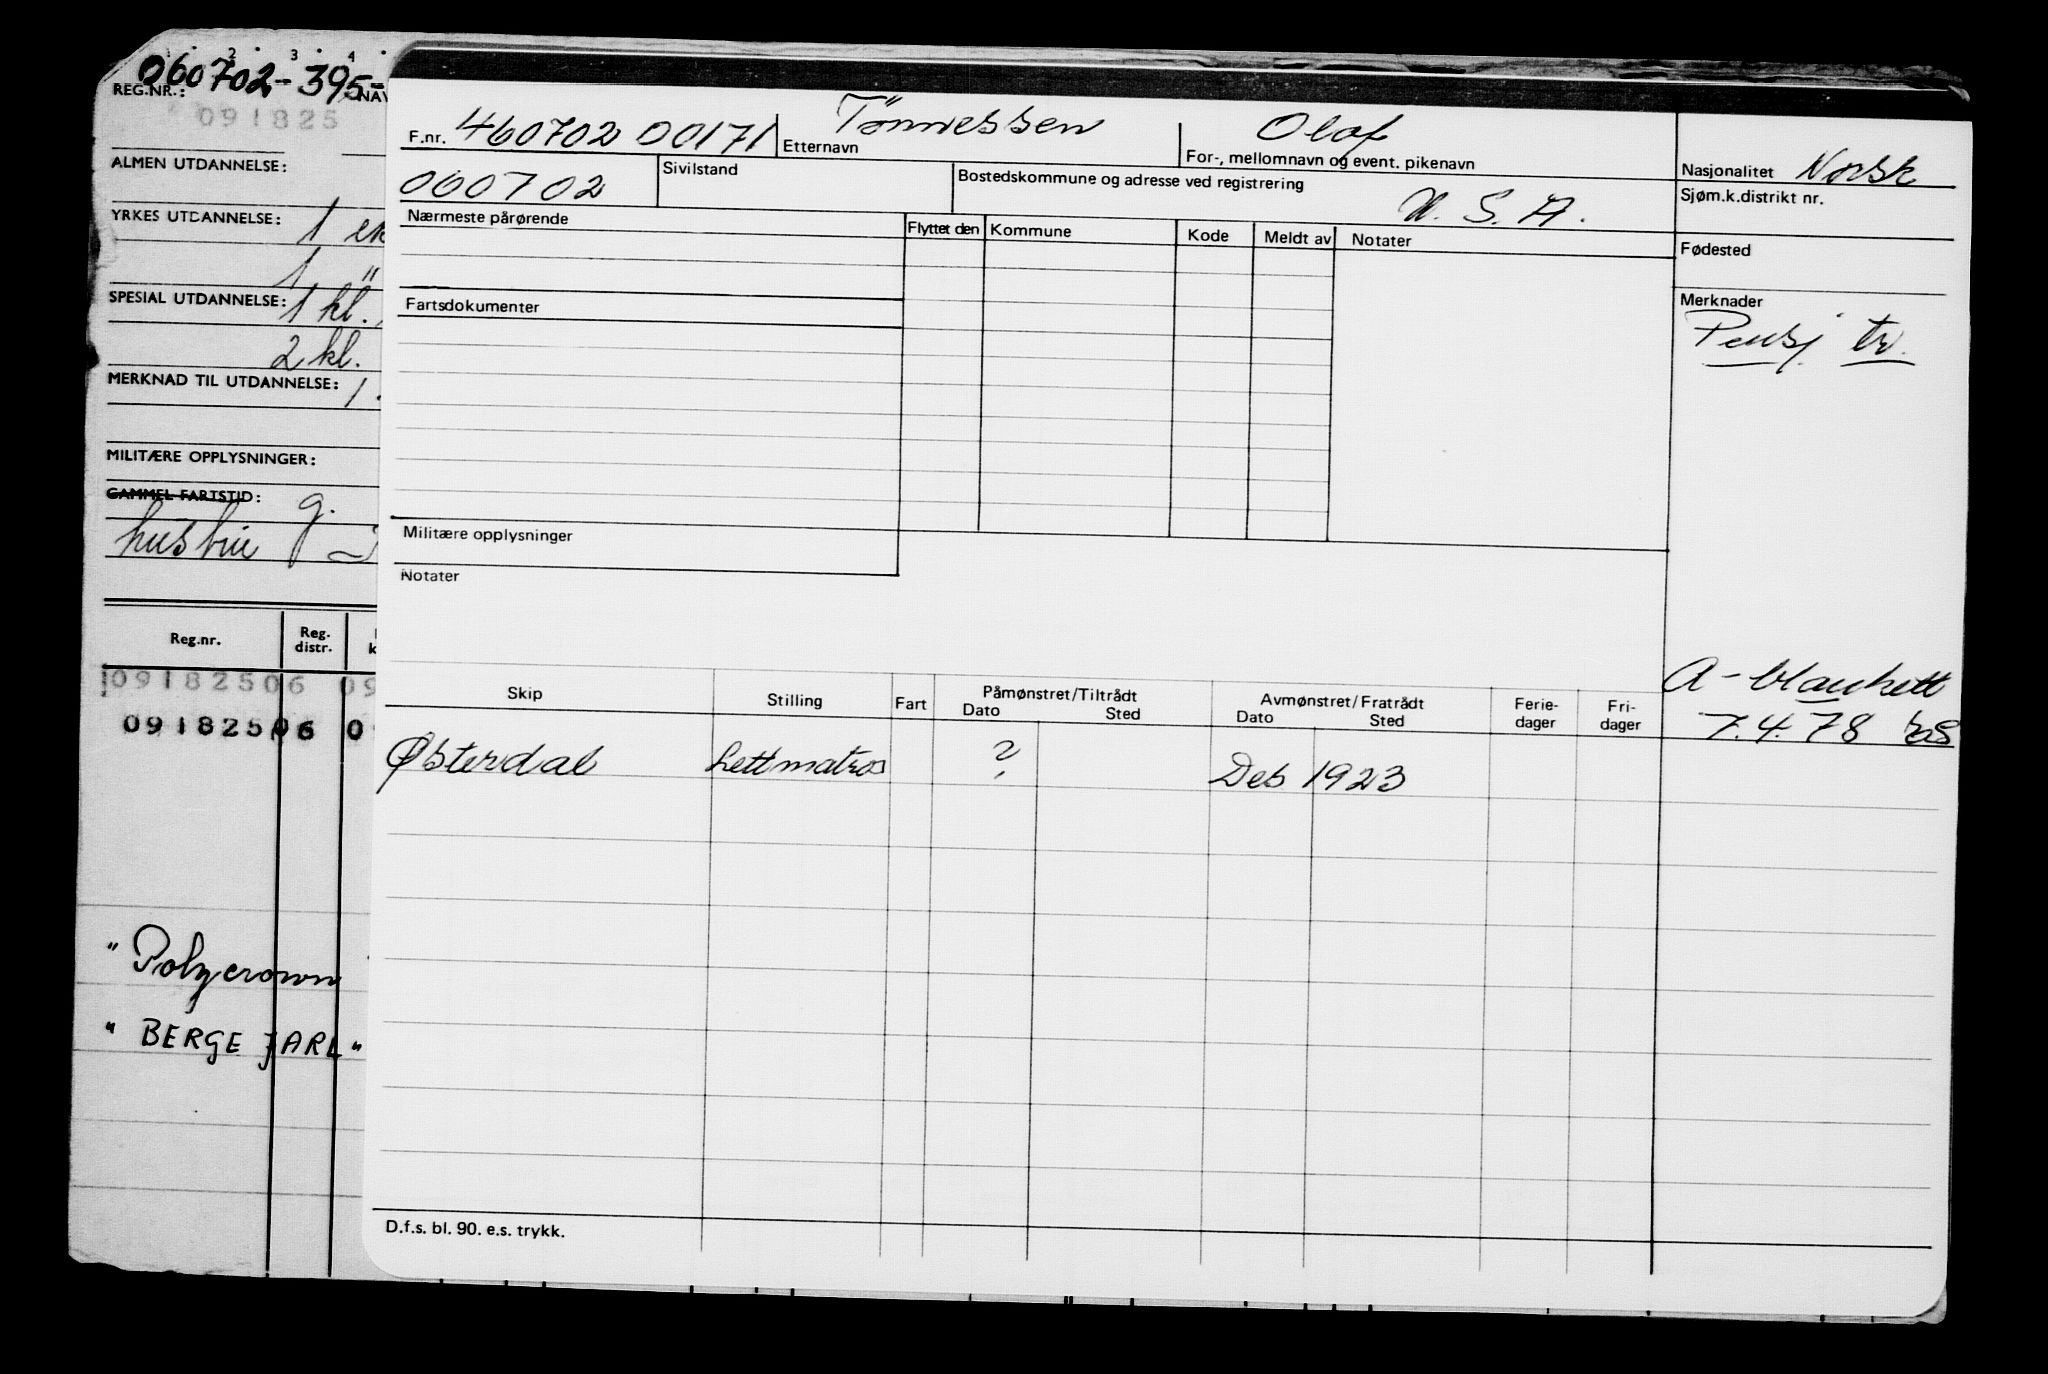 2 3 4
060702-395-
REG.NR.: NAV
091825
ALMEN UTDANNELSE:
YRKES UTDANNELSE: 1 en
1 "
SPESIAL UTDANNELSE: 1 kl.
2 kl.
MERKNAD TIL UTDANNELSE: 1
MILITÆRE OPPLYSNINGER:
GAMMEL FARTSTID: g.
Reg.nr. Reg. distr. k
09182506 09
09182506 0
"Polycrown
"BERGE JARL"
F.nr. 460702 00171 Etternavn Tønnessen For-, mellomnavn og event. pikenavn Olaf Nasjonalitet Norsk
060702 Sivilstand Bostedskommune og adresse ved registrering U.S.A. Sjøm.k.distrikt nr.
Nærmeste pårørende Flyttet den Kommune Kode Meldt av Notater Fødested
Fartsdokumenter Merknader
Pensj tr.
Militære opplysninger
Notater
A-blankett
7.4.78
Skip Stilling Fart Påmønstret/Tiltrådt Avmønstret/Fratrådt Ferie- Fri-
Dato Sted Dato Sted dager dager
Østerdal Lettmatros ? Des 1923
D.f.s. bl. 90. e.s. trykk.